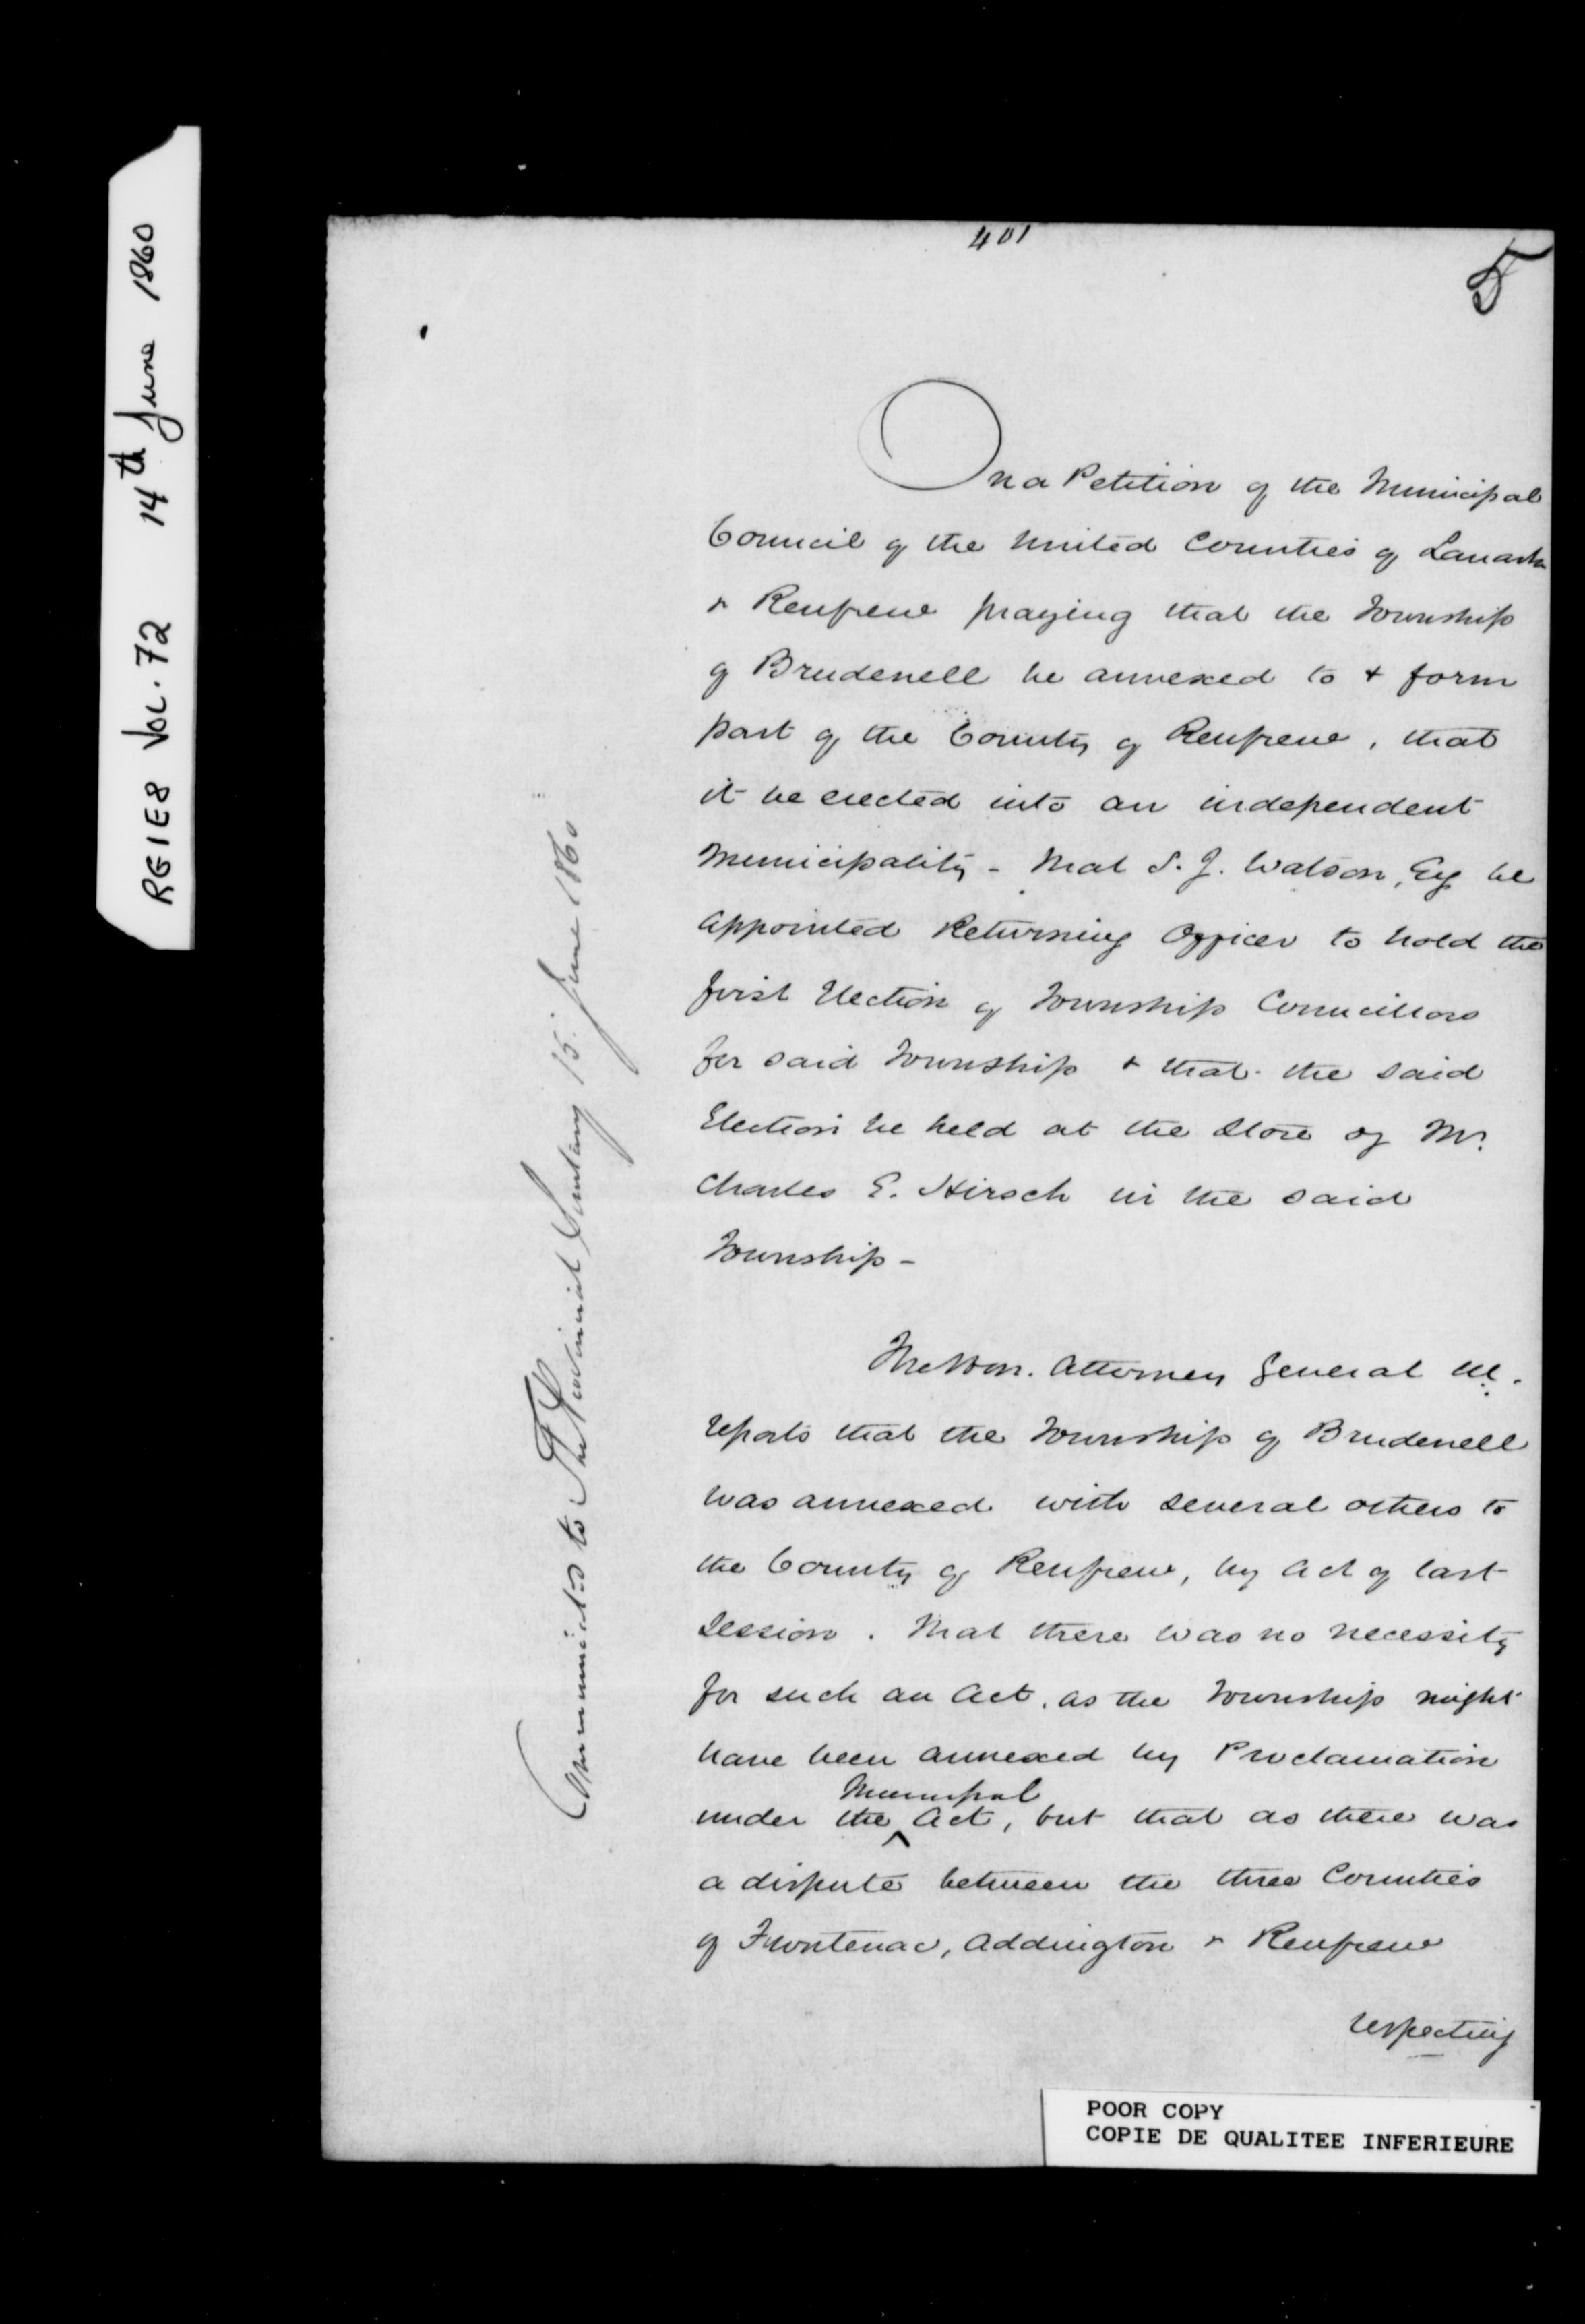 RG1E8 VOL. 72 14th June 1860
401
5
On a Petition of the Municipal
Council of the United Counties of Lanark
& Renfrew praying that the Township
of Brudenell be annexed to & form
part of the County of Renfrew, that
it be erected into an independent
Municipality - That S. J. Watson, Esq be
appointed Returning Officer to hold the
first Election of Township Councillors
for said Township & that the said
Election be held at the Store of Mr.
Charles E. Hirsch in the said
Township -
The Hon. Attorney General
reports that the Township of Brudenell
was annexed with several others to
the County of Renfrew, by Act of last
Session. That there was no necessity
for such an Act, as the Township might
have been annexed by Proclamation
Municipal
under the ^ Act, but that as there was
a dispute between the three Counties
of Frontenac, Addington & Renfrew
respecting
Communicated to The Provincial Secretary 15. June 1860
POOR COPY
COPIE DE QUALITEE INFERIEURE